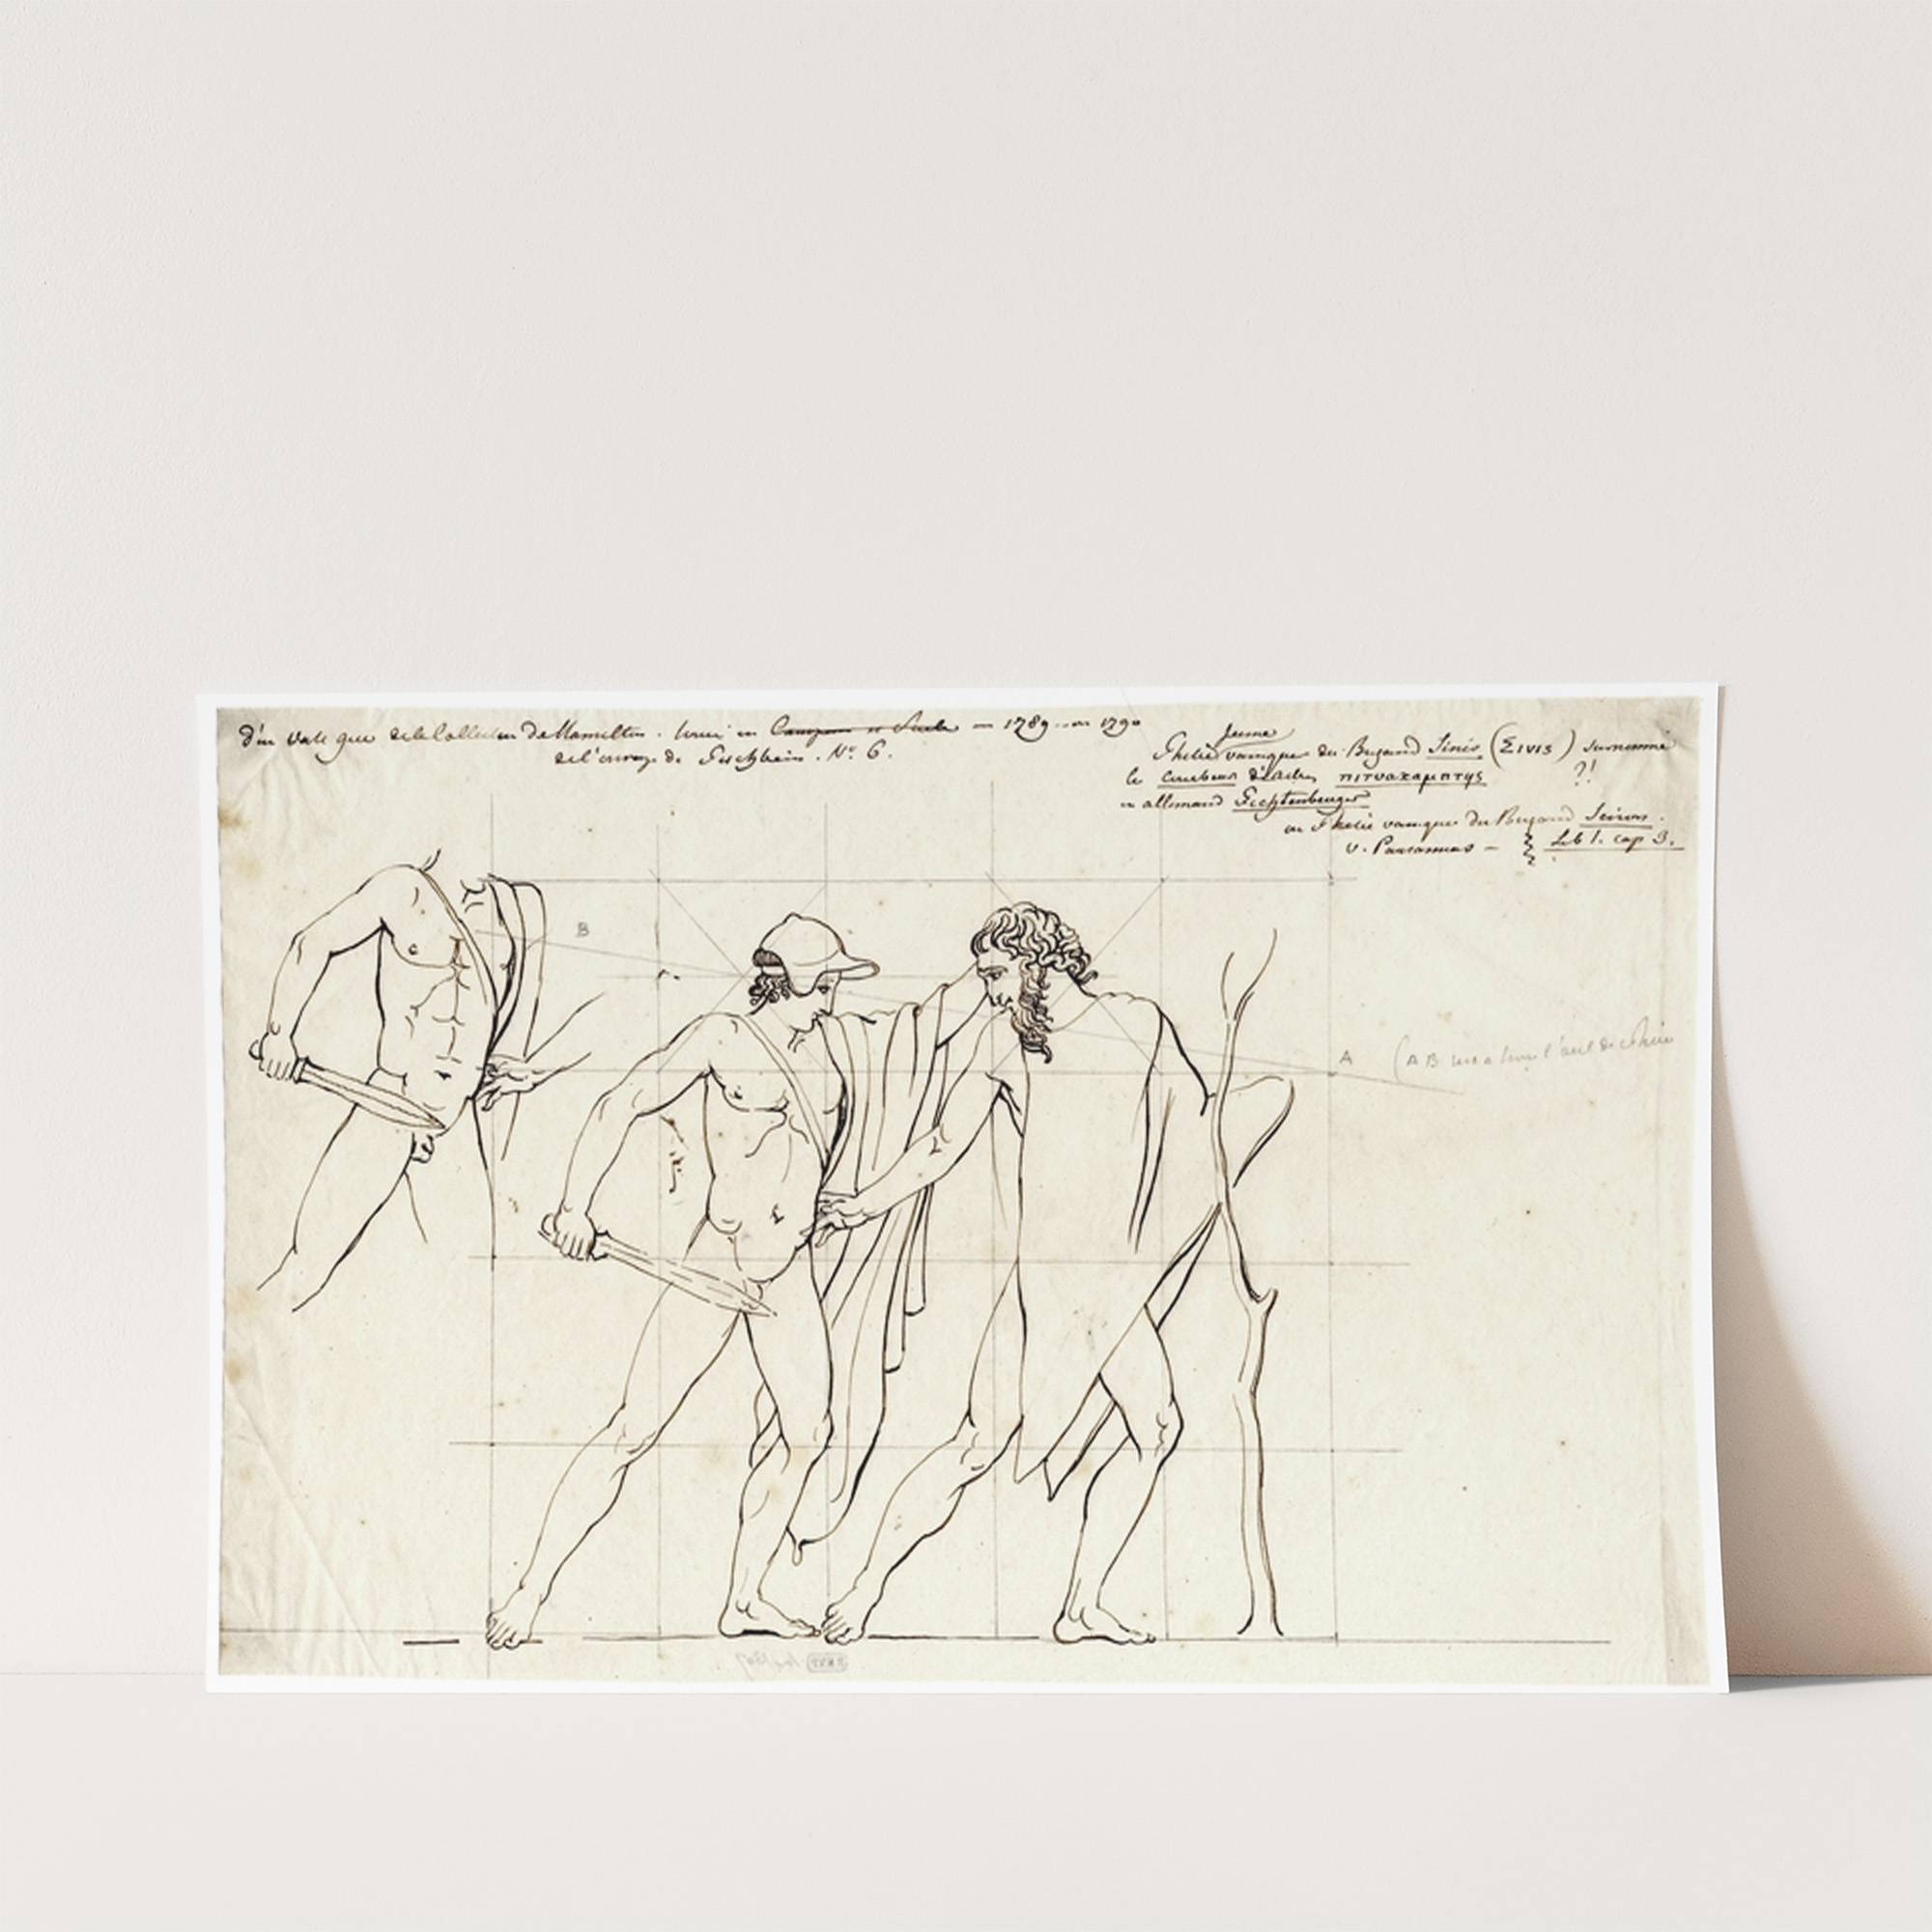 d'un Vase grec de la Collection de Hamilton. trouvé en Campanie et Sicile — 1789 ou 1790
de l'ouvrage de Tischbein. N.º 6.
Jeune
Thésée vainqueur du Brigand Sinis (Σινις) surnommé
le courbeur d'arbres πιτυοκαμπτης ?!
en allemand Fichtenbeuger
ou Thésée vainqueur du Brigand Sciron.
v. Pausanias — Lib 1. cap 3.
B
A (A B l'œil de